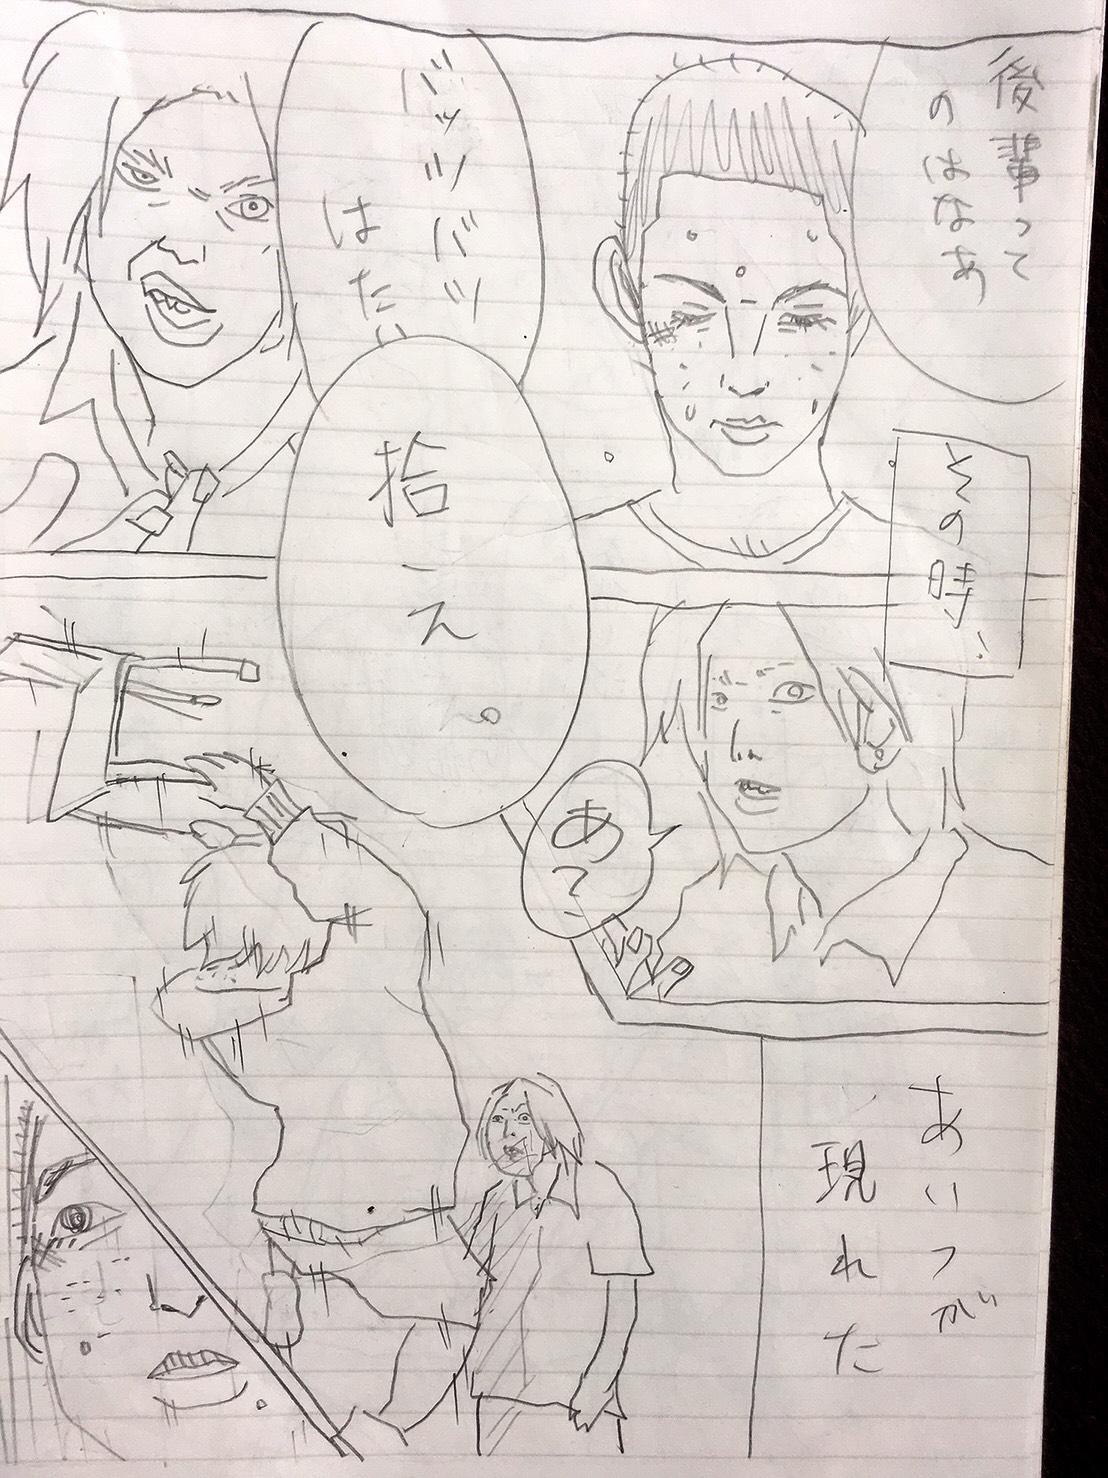 後輩って
のはなあ
バッツバツ
はたい
拾ーえ。
その時、
あ?
あいつが
現れた